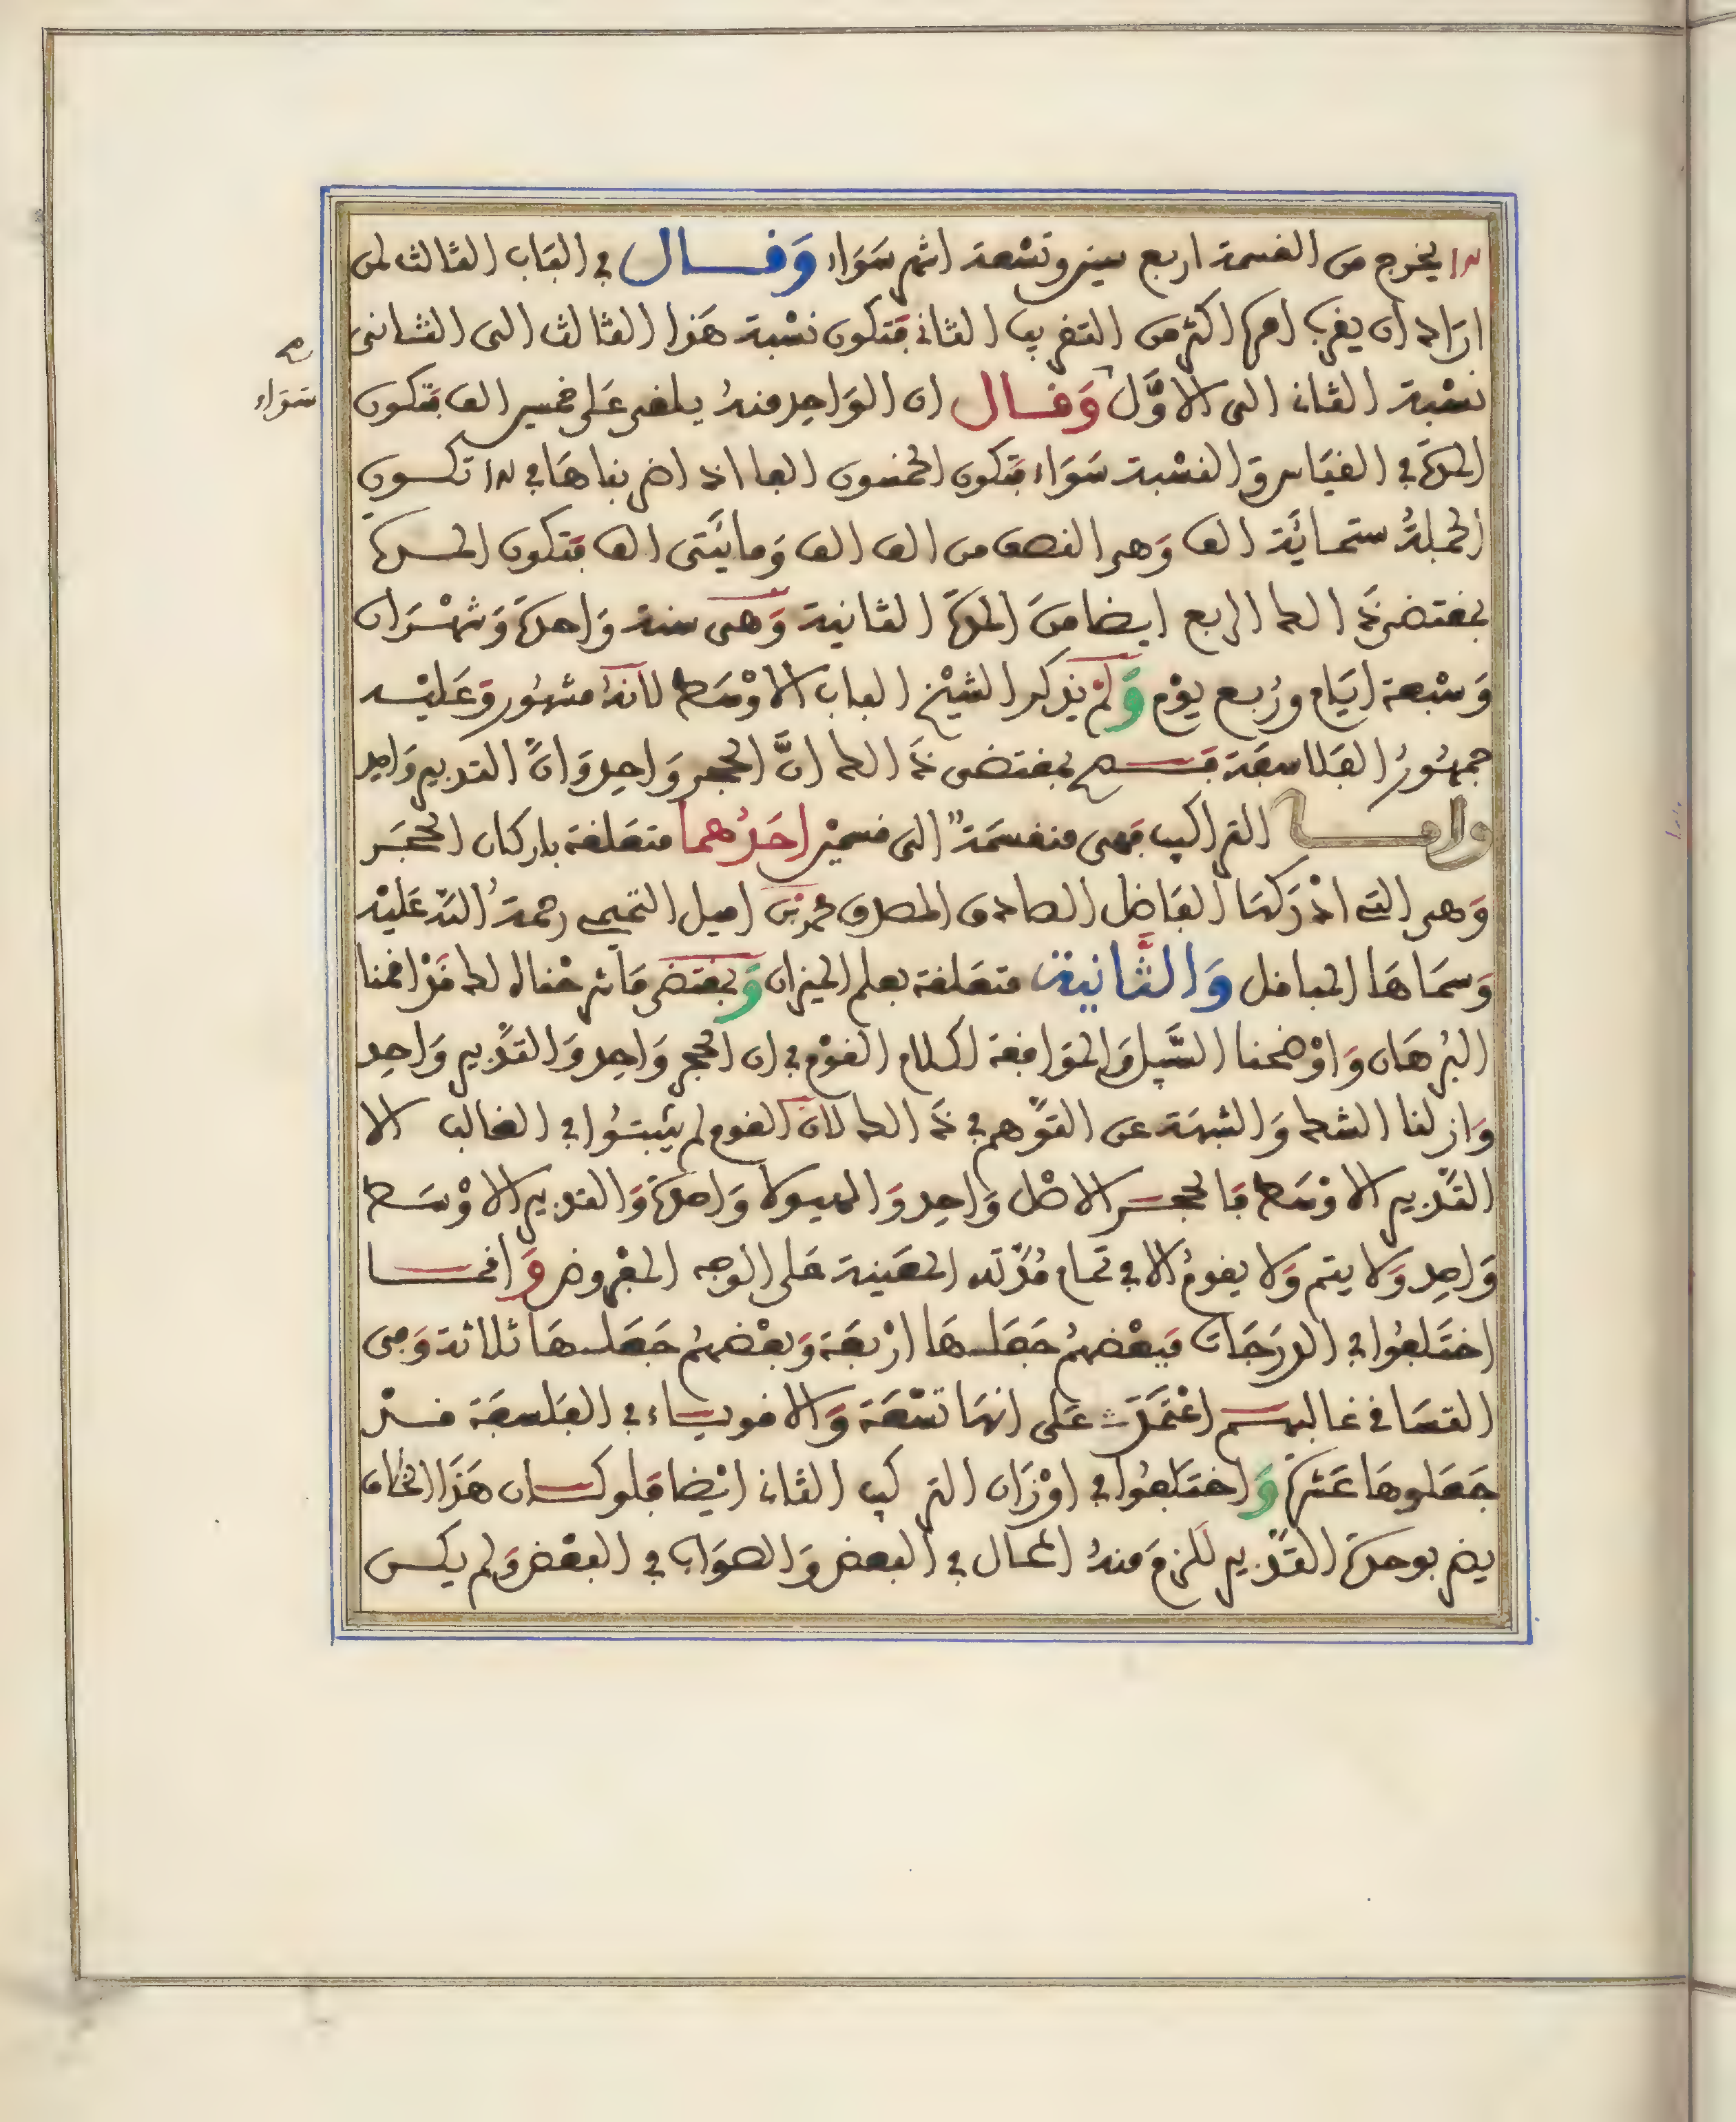 ١٢ يخرج من القسمة اربع سنين وتسعة اشهر سَوَاء وَقَال في البَاب الثالث لمن
ارَاد ان يقرب امرها اكثر من التقريب الثاني فتكون نسْبة هَذا الثالث الى الثانى
نسْبة الثاني الى الاوَّل وَقال ان الوَاحِد منهُ يلقى عَلى خمسين الف فتكون
المدة في القيَاس وَالنسْبة سَوَاء فتكون الخمسون الفا اذا ضربناهَا في ١٢ تكون
الجملةُ ستمائَة الف وَهى النصف من الف الف وَمائَتى الف فتكون المدة
بمقتضى ذلك الربع ايضا منَ المدة الثانية وَهى سنة وَاحدة وَشهْرَان
وَسَبْعة ايَام ورُبع يوْم وَلمْ يذكر الشيْخ الباب الاوْسَط لانهُ مشهُور وَعَليْه
جمهُورُ الفَلاسفَة فَصح بمقتضى ذلك انَّ الحجر وَاحِد وَانَّ التدبير وَاحِد
وامـــا التراكيب فهى منقسمَة الى قسميْن احَدُهما متعَلقة باركان الحجَر
وَهى التى ادْرَكهَا الفَاضل الصادق المصدق محمد بن اميل التميمى رحمةُ الله عَليْه
وَسمَاهَا المباقل وَالثَّانية متعَلقة بعلم الميزان وَبمقتضى مَا شرحْناه لك قدْ اقمنا
البُرهَان وَاوْضحنا السَّبيل وَالموَافقة لكلام القوْم في ان الحجر وَاحِد وَالتَّدْبير وَاحِد
وَازلنا الشك وَالشبهَة عن التوَّهم في ذلك لانَّ القوم لم يثبتُوا في الغالب الا
التَّدْبير الاوْسَط فَالحجــر الاصْل وَاحِد وَالهيولا وَاحدة وَالتدبير الاوْسَط
وَاحِد وَلا يتم وَلا يقومُ الا في تمام مُدَّته المعَينة عَلى الوجه المفْروض وَانمـا
اختَلفُوا في الدرَجَات فبَعْضهمُ جَعَلــهَا ارْبعَة وَبعْضهمُ جَعَلــهَا ثلاثة وَهى
التسَاقى غالبهــم اعْتمَدَت عَلى انهَا تسْعَة وَالاقويــاء في الفلَاسفَة قــدْ
جَعَلوهَا عَشرة وَاختَلفُوا في اوْزَان التركيب الثاني ايْضا فَلو كــان هَذَا الخلاف
يضر بوحدة التَّدْبير للزمَ منهُ المحال في البَعض وَالصوَاب في البعْض وَلم يكــن
سَوَاء